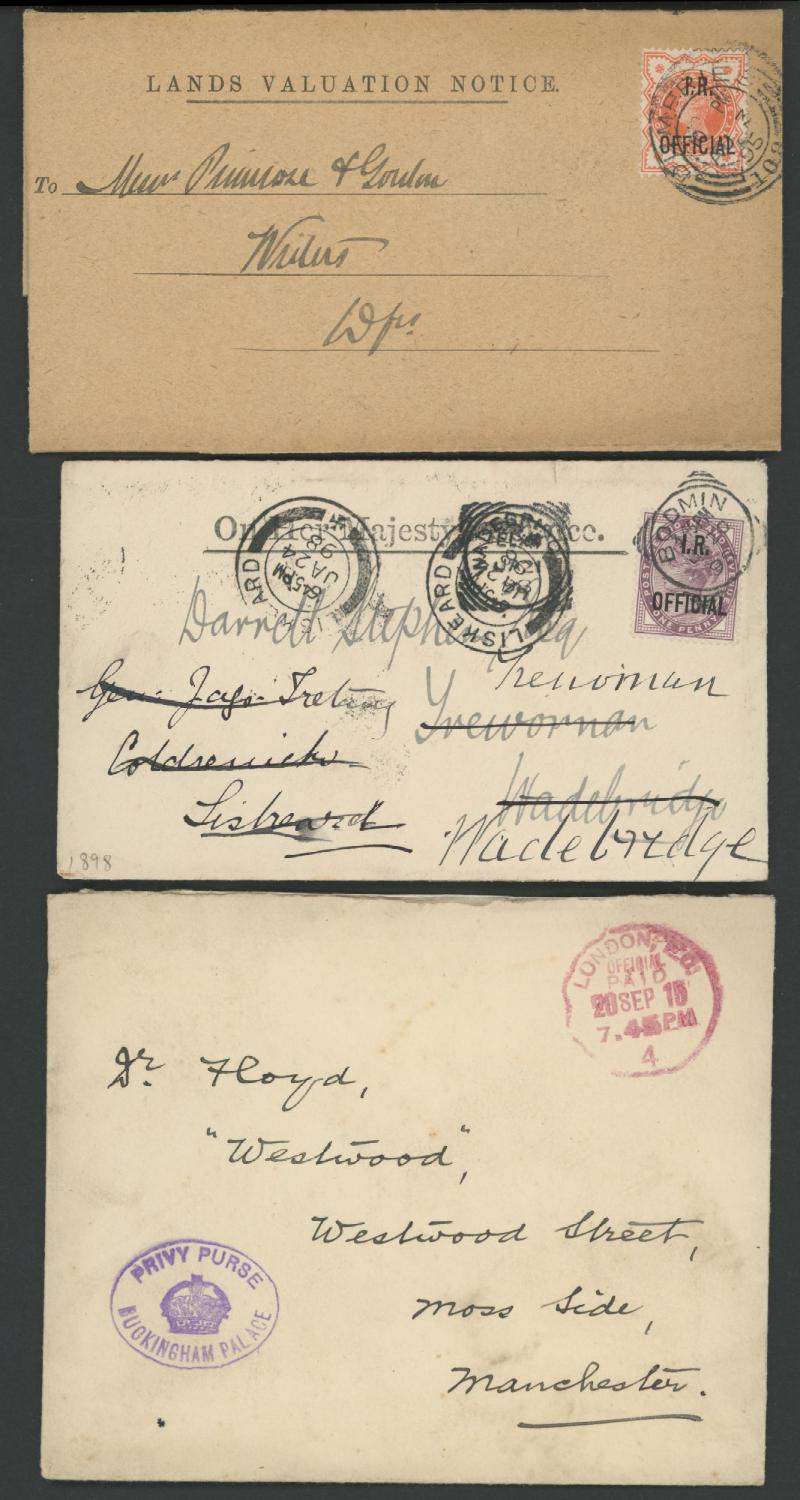 LANDS VALUATION NOTICE.
I.R.
OFFICIAL
To Messrs Primrose & Gordon
Writers
Dfs
On Her Majesty's Service.
LISKEARD
6 45 PM
JA 24
98
WADEBRIDGE
LISKEARD
BODMIN
I.R.
OFFICIAL
ONE PENNY
Darrell Stephens Esq
Trewornan
Gen. Jago-Trelawny
Trewornan
Coldrenick
Wadebridge
Liskeard
Wadebridge
1898
LONDON, E.C.
OFFICIAL
PAID
20 SEP 15
7.45 PM
4
Dr. Floyd,
"Westwood",
Westwood Street,
Moss Side,
Manchester.
PRIVY PURSE
BUCKINGHAM PALACE